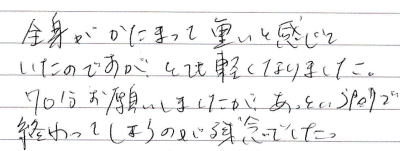 全身がかたまって重いと感じて
いたのですが、とても軽くなりました。
70分お願いしましたが、あっという間で
終わってしまうのが残念でした。